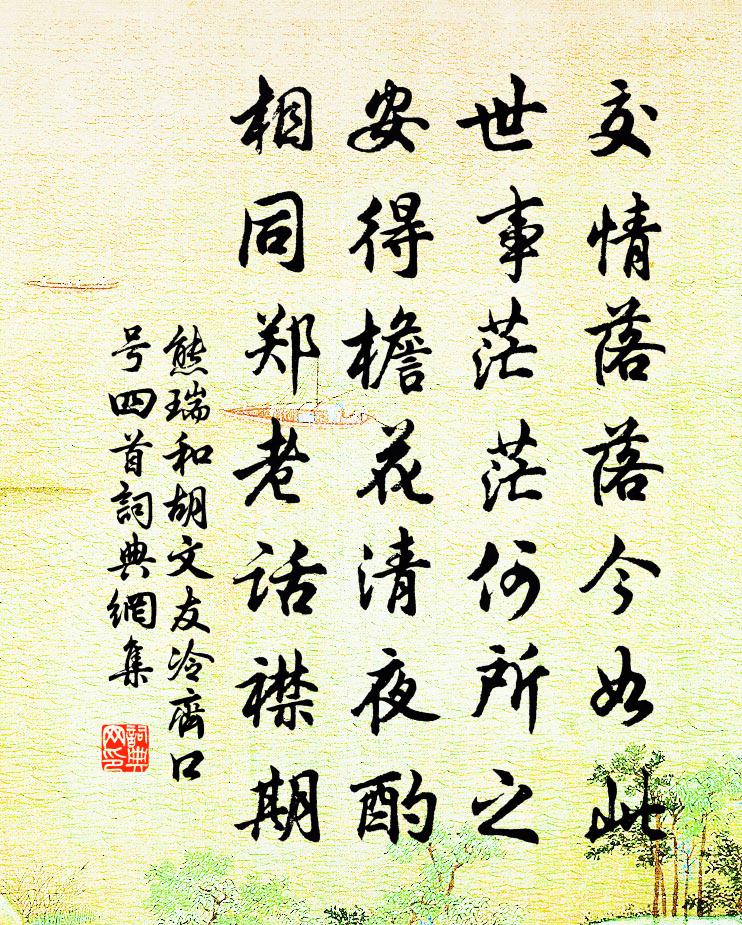 交情落落今如此
世事茫茫何所之
安得檐花清夜酌
相同郑老话襟期
熊瑞和胡文友冷齑口
号四首詞典網集
詞典网印